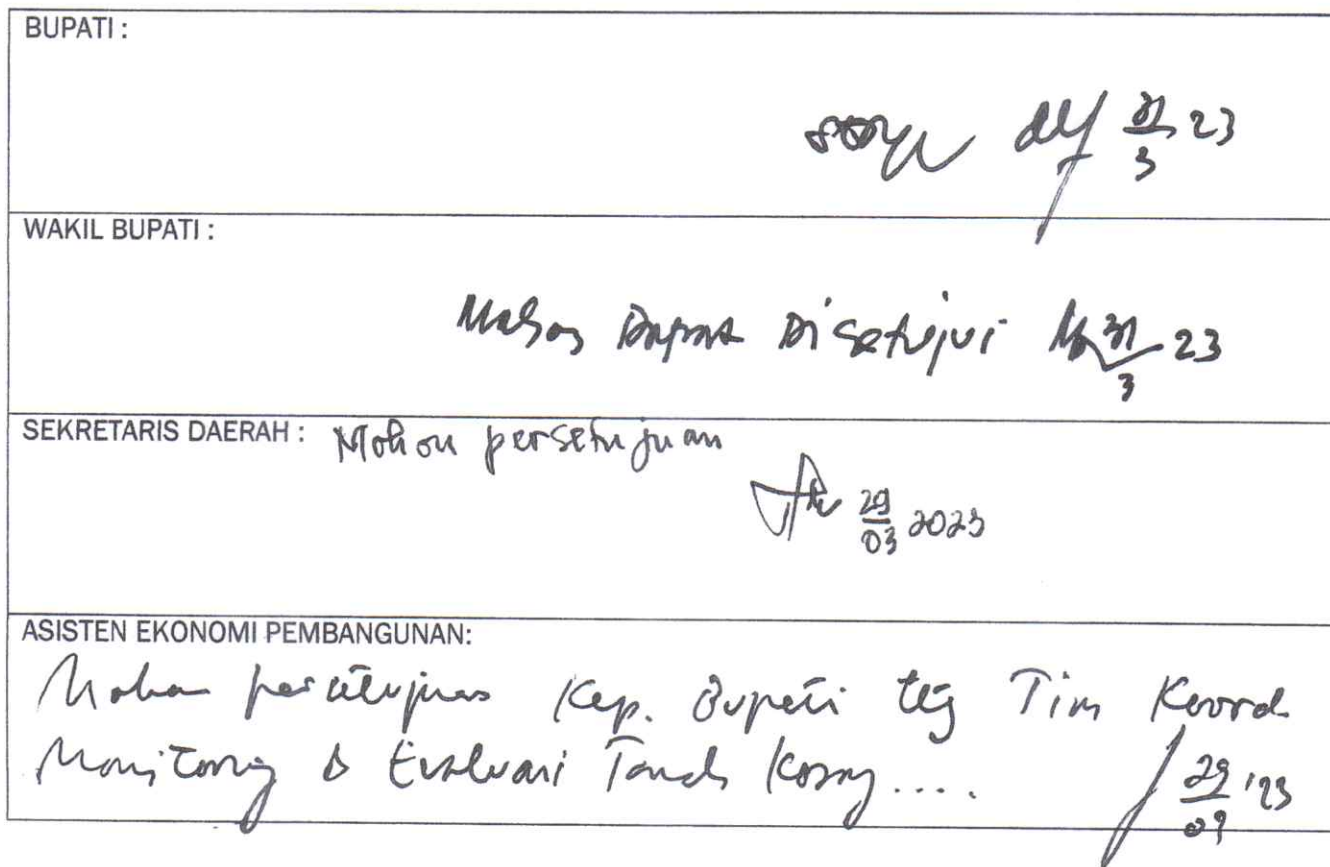 BUPATI :
31/3 23
WAKIL BUPATI :
Mohon Dapat Disetujui 31/3 23
SEKRETARIS DAERAH : Mohon persetujuan
29/03 2023
ASISTEN EKONOMI PEMBANGUNAN:
Mohon persetujuan Kep. Bupati ttg Tim Koord
Monitoring & Evaluasi Tanah Kosong....
29/03 '23